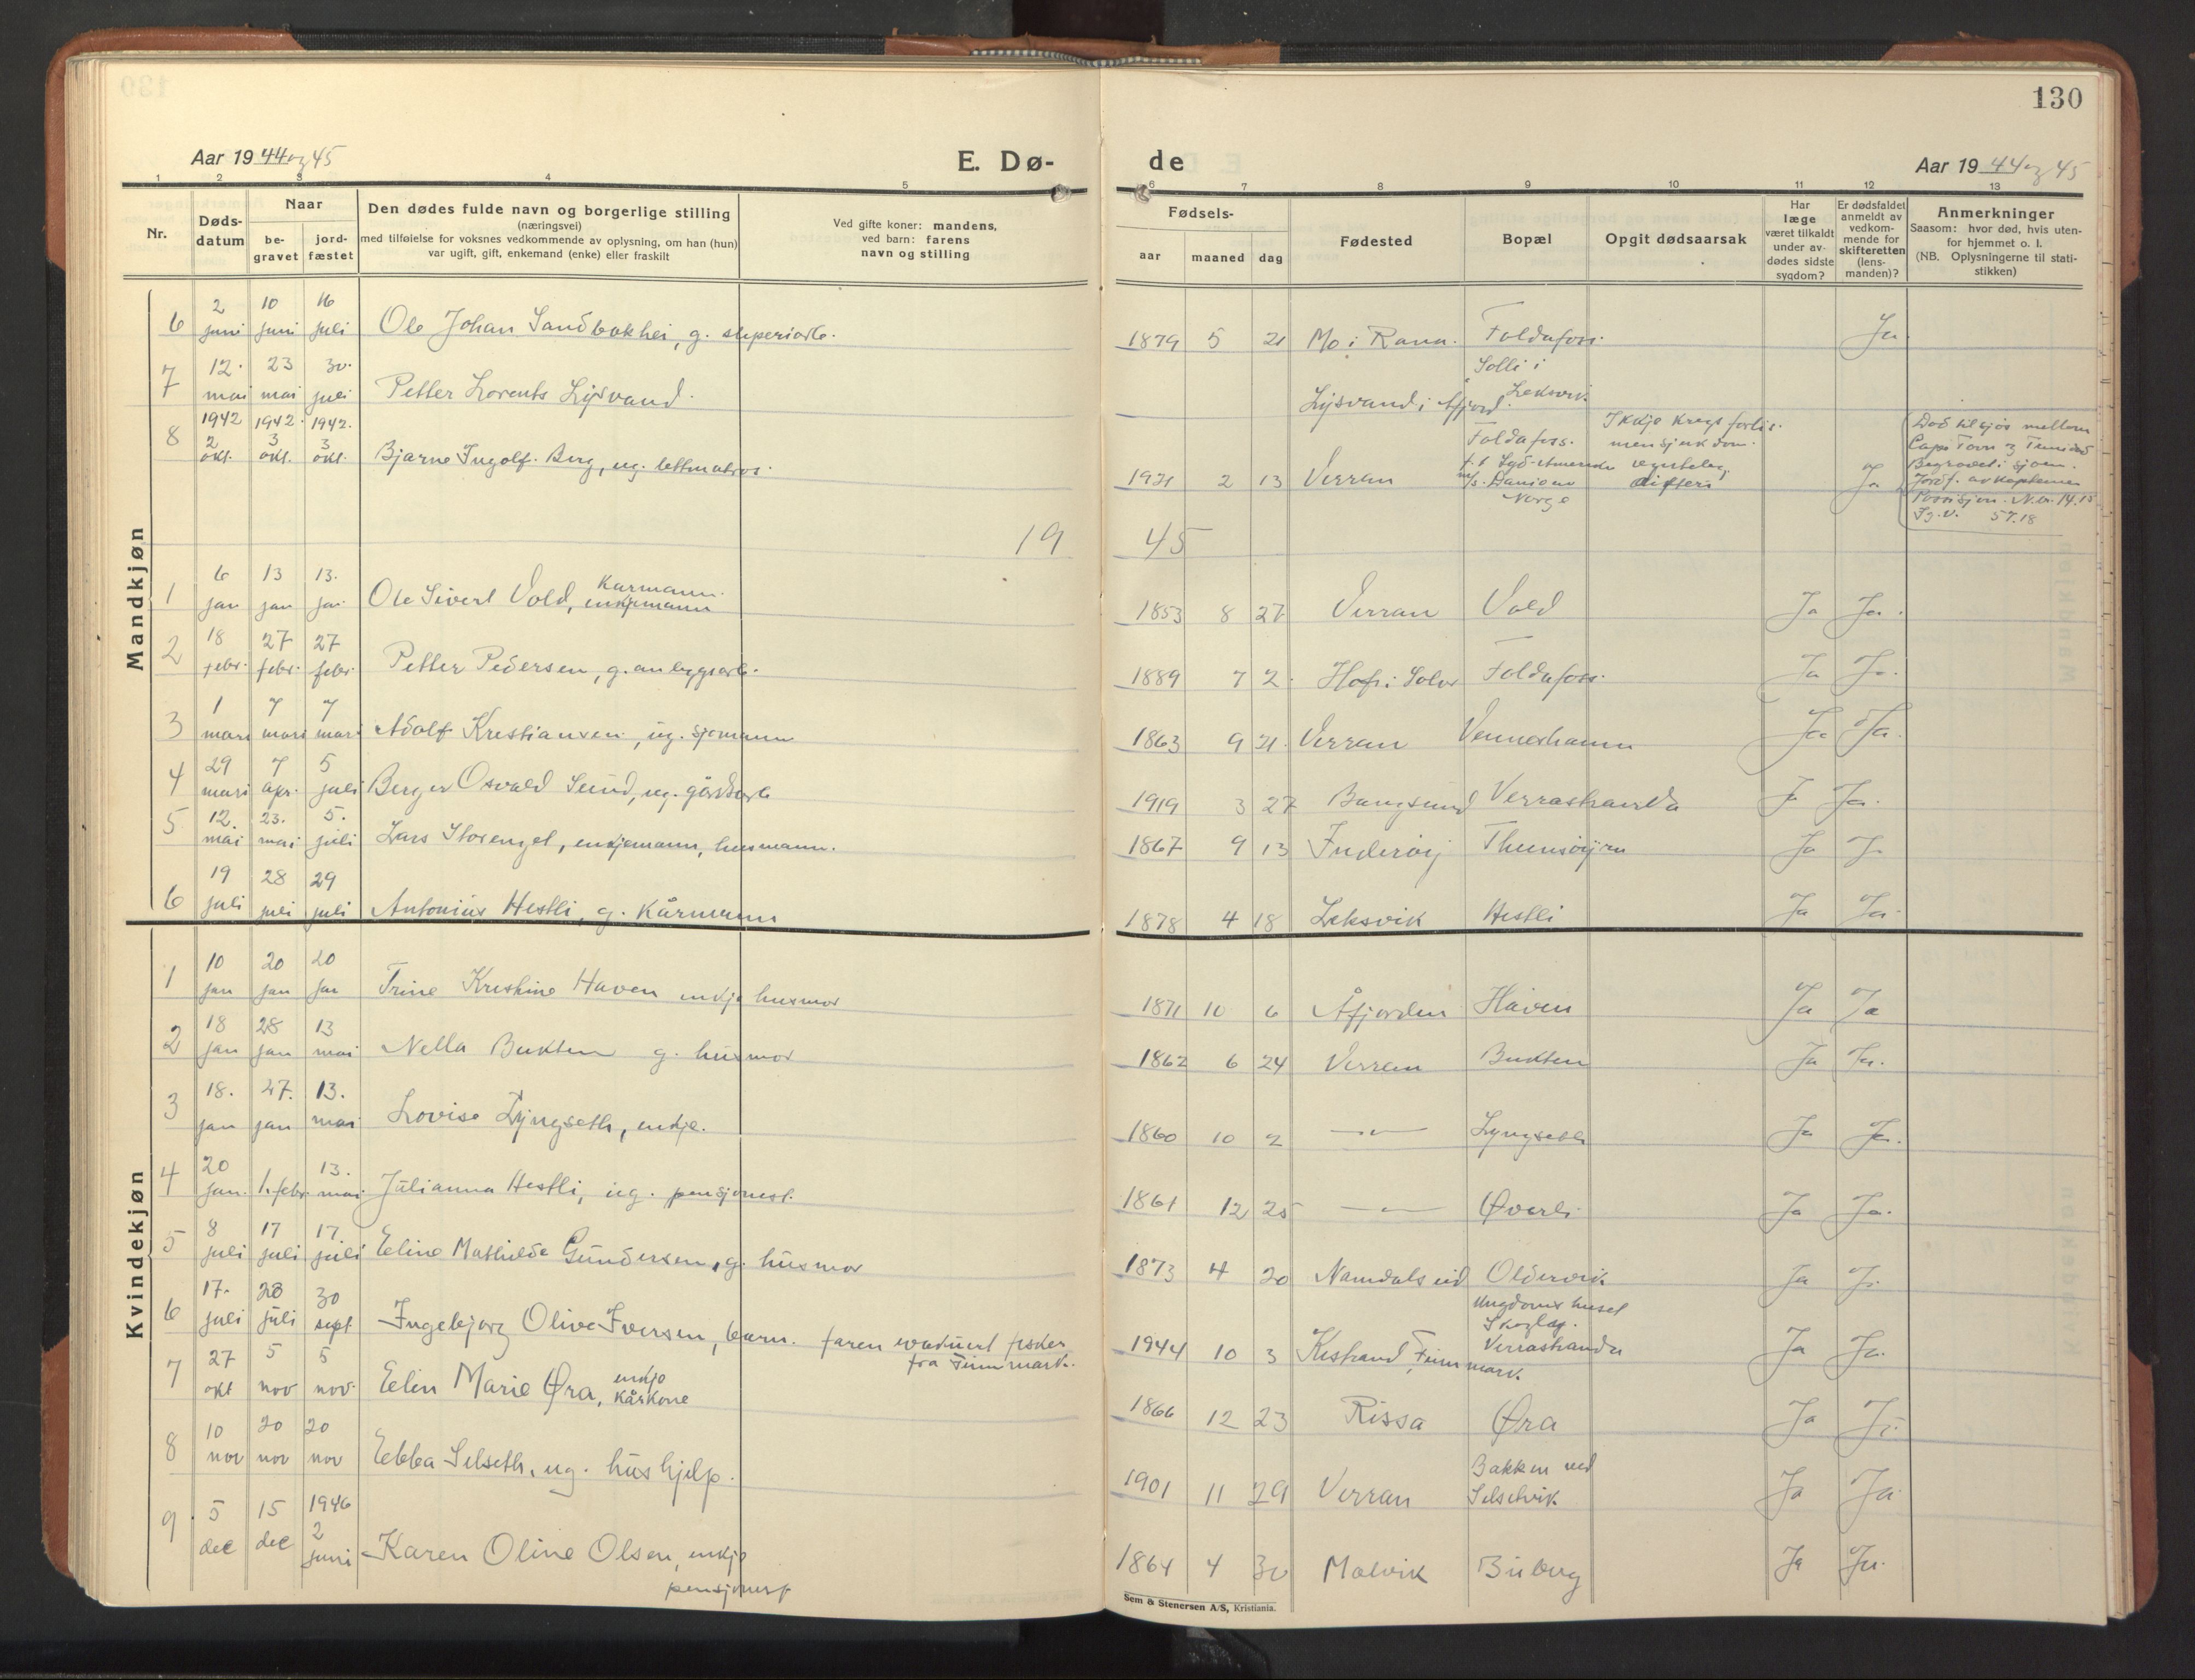 130
Aar 19 44 og 45
E. Dø-
de
Aar 19 44 og 45
1 2 3 4 5 6 7 8 9 10 11 12 13
Nr.
Døds-
datum
Naar
be-
gravet
jord-
fæstet
Den dødes fulde navn og borgerlige stilling
(næringsvei)
med tilføielse for voksnes vedkommende av oplysning, om han (hun)
var ugift, gift, enkemand (enke) eller fraskilt
Ved gifte koner: mandens,
ved barn: farens
navn og stilling
Fødsels-
aar maaned dag
Fødested
Bopæl
Opgit dødsaarsak
Har
læge
været tilkaldt
under av-
dødes sidste
sygdom?
Er dødsfaldet
anmeldt av
vedkom-
mende for
skifteretten
(lens-
manden)?
Anmerkninger
Saasom: hvor død, hvis uten-
for hjemmet o. l.
(NB. Oplysningerne til stati-
stikken)
Mandkjøn
6 2 juni 10 juni 16 juli Ole Johan Sandbakhei, g. 1879 5 21 Mo i Rana. Foldafoss. Ja
7 12. mai 23 mai 30. juli Petter Lorents Lysvand. Lysvand i Åfjord. Solli i
Leksvik.
8 1942 2 okt. 1942. 3 okt. 1942. 3 okt. Bjarne Ingolf Berg, ug. lettmatros. 1921 2 13 Verran Foldafoss.
f. t. Syd-Amerika
m/s.
Norge
Ikkje krigsforlis.
men sjukdom.
Ja
Død til sjøs mellom
Cape Town og
Begravet i sjøen.
Jordf. av kapteinen
14.15
57.18
19 45
1 6 jan 13 jan 13. jan. Ole Sivert Vold, Kårmann. enkjemann 1853 8 27 Verran Vold Ja Ja.
2 18 febr. 27 febr. 27 febr. Petter Pedersen, g. anleggsarb. 1889 7 2. Hof i Solør Foldafoss. Ja Ja.
3 1 mars 7 mars 7 mars Adolf Kristiansen, ug. sjømann 1863 9 21. Verran Venneshamn Ja Ja.
4 29 mars 7 apr. 5 juli Berger Osvald Sund, ug. gårdsarb 1919 3 27 Bangsund Verrastranda Ja Ja.
5 12. mai 23. mai 5. juli Lars Storenget, enkjemann, husmann. 1867 9 13 Inderøy Thunsøyra Ja Ja
6 19 juli 28 juli 29 juli Antonius Hestli, g. Kårmann 1878 4 18 Leksvik Hestli Ja Ja
Kvindekjøn
1 10 jan 20 jan 20 jan Trine Kristine Haven enkje husmor 1871 10 6 Åfjorden Haven Ja Ja
2 18 jan 28 jan 13 mai Nella Bukten g. husmor 1862 6 24 Verran Bukten Ja Ja.
3 18. jan 27. jan 13. mai Lovise Lyngseth, enkje. 1860 10 2 —〃— Lyngseth Ja Ja.
4 20 jan. 1. febr. 13. mai Julianna Hestli, ug. pensjonist. 1861 12 25 —〃— Øverli Ja Ja.
5 8 juli 17 juli 17. juli Eline Mathilde Gundersen, g. husmor 1873 4 20 Namdalseid Oldervik Ja Ja
6 17. juli 28 juli 30 sept. Ingebjørg Olive Iversen, barn. faren evakuert fisker
fra Finnmark. 1944 10 3 Kistrand, Finnmark. Ungdomshuset
Skoglag.
Verrastranda Ja Ja.
7 27 okt 5 nov 5 nov. Eelin Marie Øra, enkje kårkone 1866 12 23 Rissa Øra Ja Ja
8 10 nov 20 nov 20 nov Ebba Selseth, ug. hushjelp. 1901 11 29 Verran Bakken ved
Selsetvik Ja Ja
9 5 dec 15 dec 1946 2 juni Karen Oline Olsen, enkje
pensjonist 1864 4 30 Malvik Buberg Ja Ja.
Sem & Stenersen A/S, Kristiania.